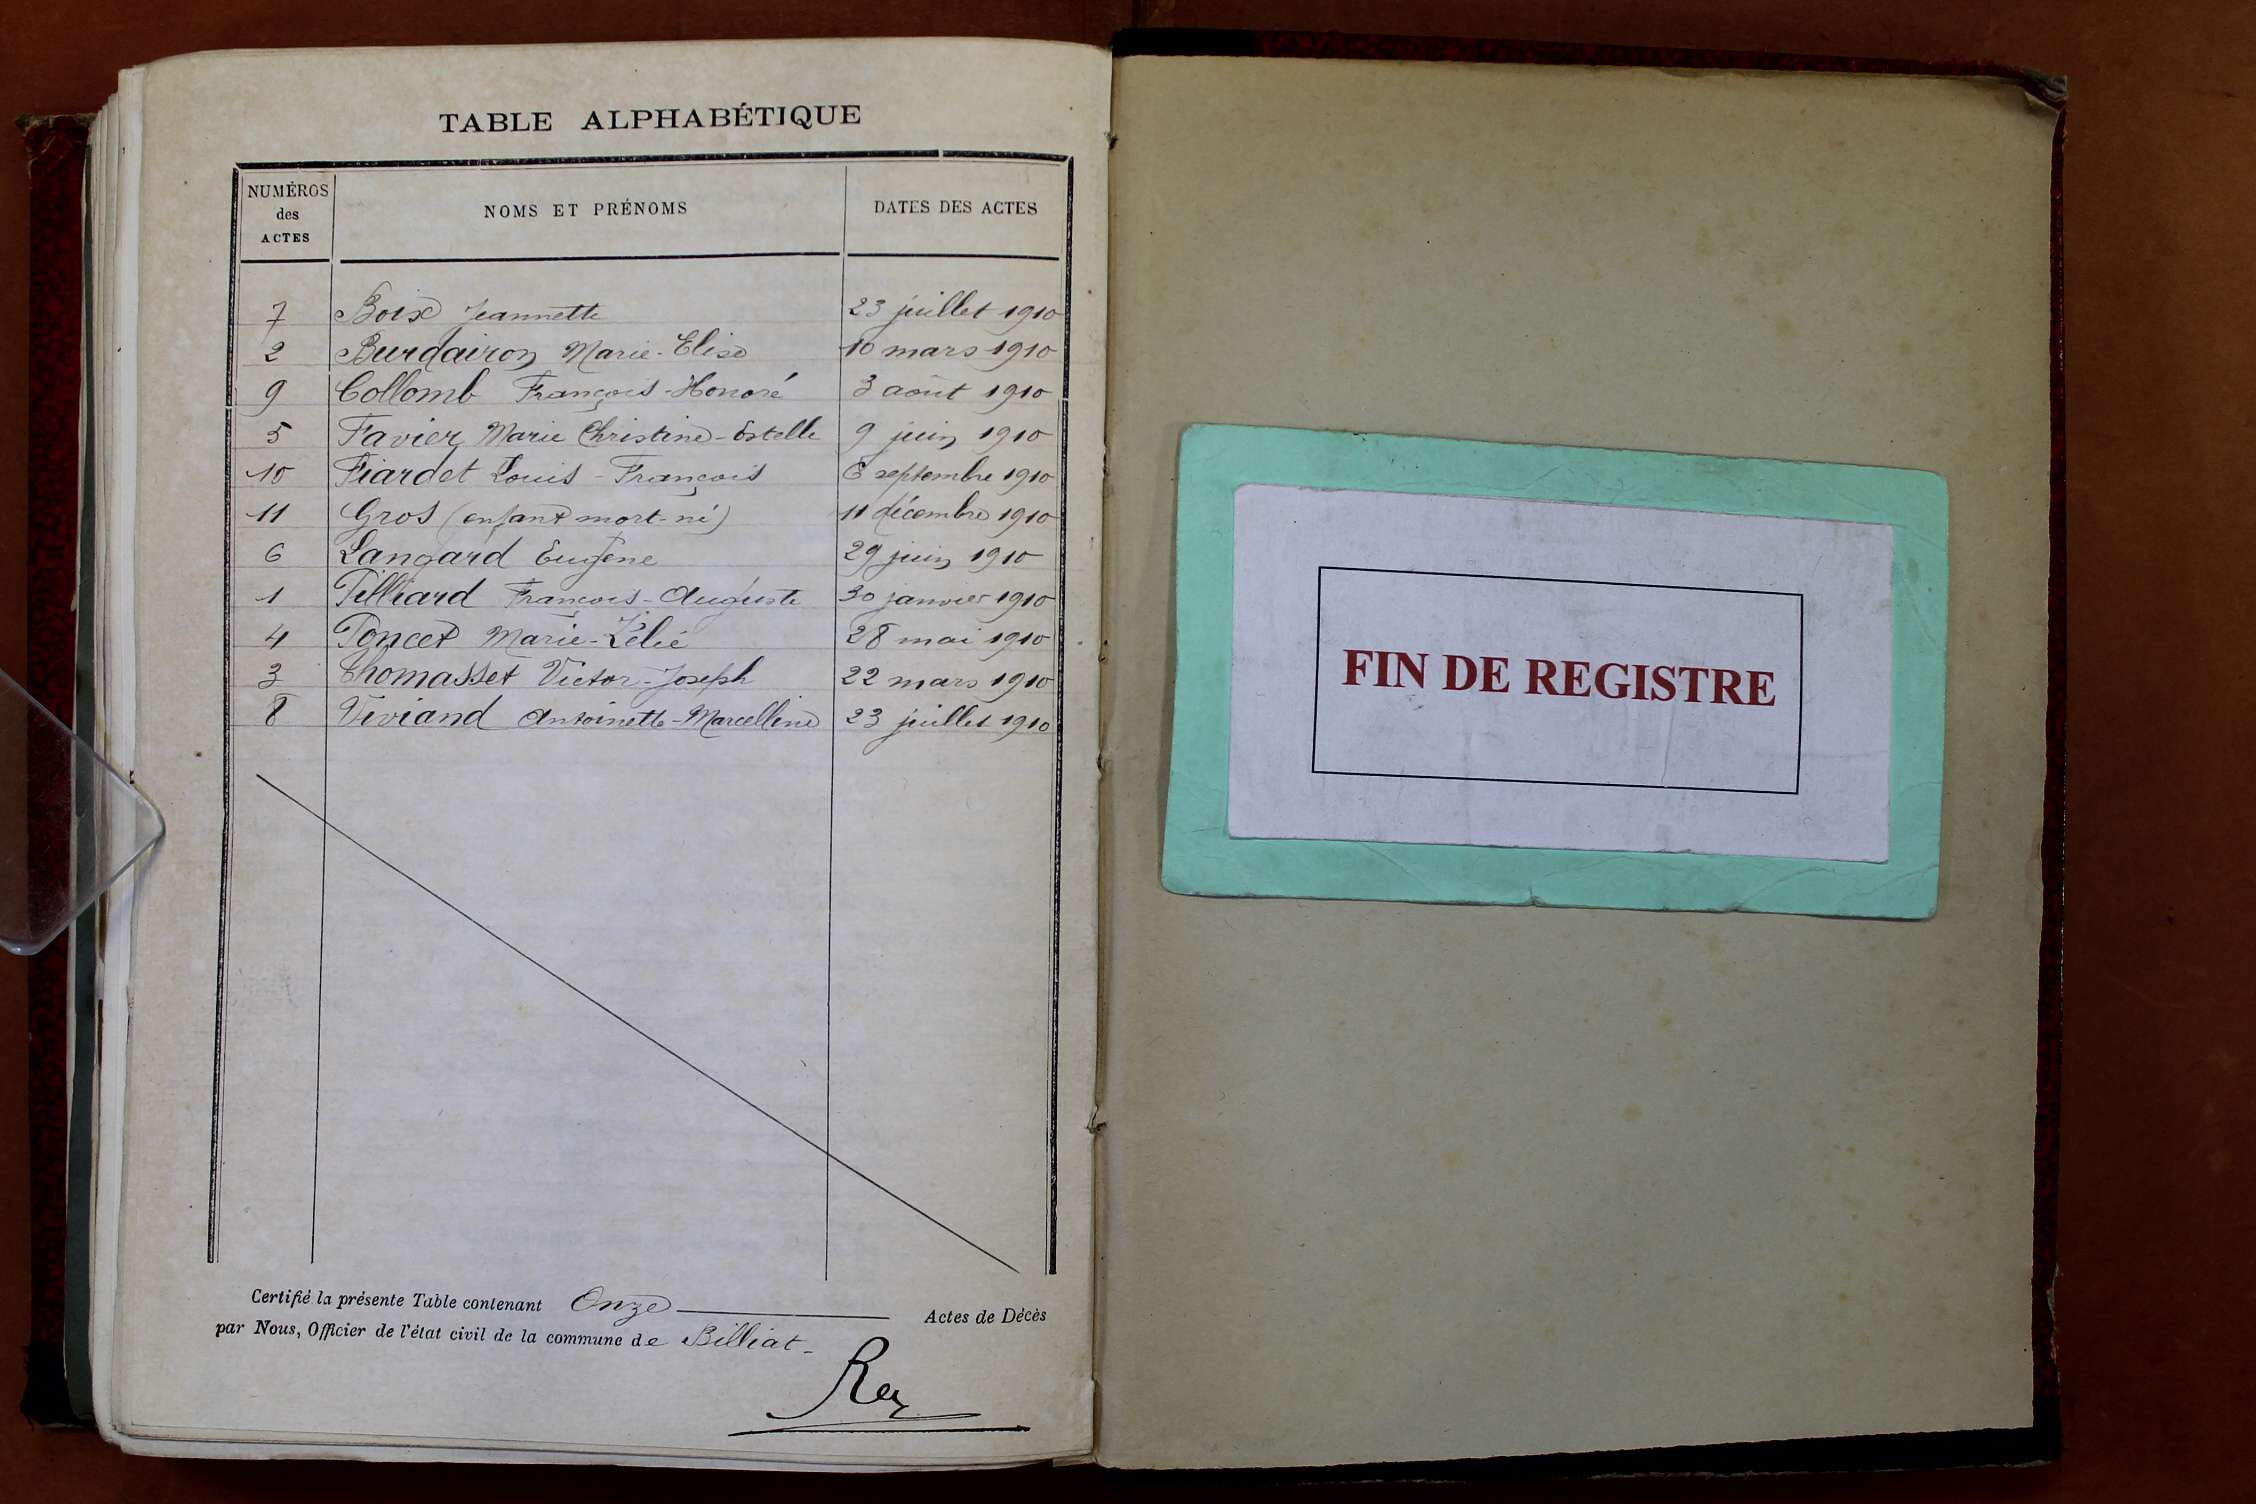 TABLE ALPHABÉTIQUE
NUMÉROS des ACTES NOMS ET PRÉNOMS DATES DES ACTES
7 Boix Jeannette 23 juillet 1910
2 Burdairon Marie-Elise 10 mars 1910
9 Collomb François-Honoré 3 août 1910
5 Favier Marie Christine-Estelle 9 juin 1910
10 Fiardet Louis-François 6 septembre 1910
11 Gros (enfant mort-né) 11 décembre 1910
6 Langard Eugène 29 juin 1910
1 Pilliard François-Auguste 30 janvier 1910
4 Poncet Marie-Zélie 28 mai 1910
3 Thomasset Victor-Joseph 22 mars 1910
8 Viviand Antoinette-Marcelline 23 juillet 1910
Certifié la présente Table contenant Onze Actes de Décès
par Nous, Officier de l'état civil de la commune de Billiat-
Rey
FIN DE REGISTRE